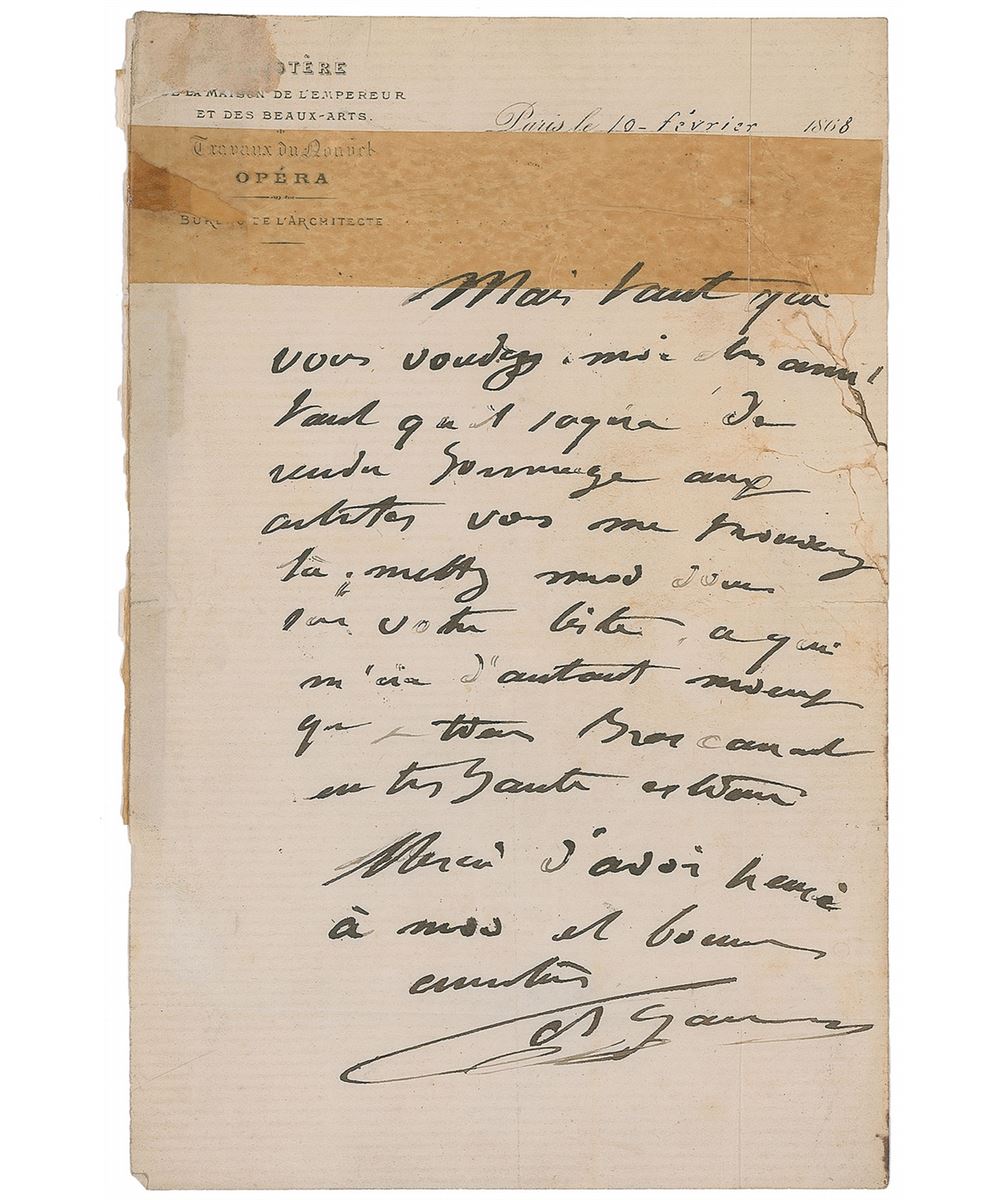 MINISTÈRE
DE LA MAISON DE L'EMPEREUR
ET DES BEAUX-ARTS.
Paris le 10 février 1868
Travaux du Nouvel
OPÉRA
BUREAU DE L'ARCHITECTE
Mais tant que
vous voudrez mon cher ami!
tant qu'il s'agira de
rendre hommage aux
artistes vous me trouverez
là. mettez moi donc
sur votre liste, ce qui
m'ira d'autant mieux
que je tiens
en très haute estime
Merci d'avoir pensé
à moi et bonnes
amitiés
Ch Garnier